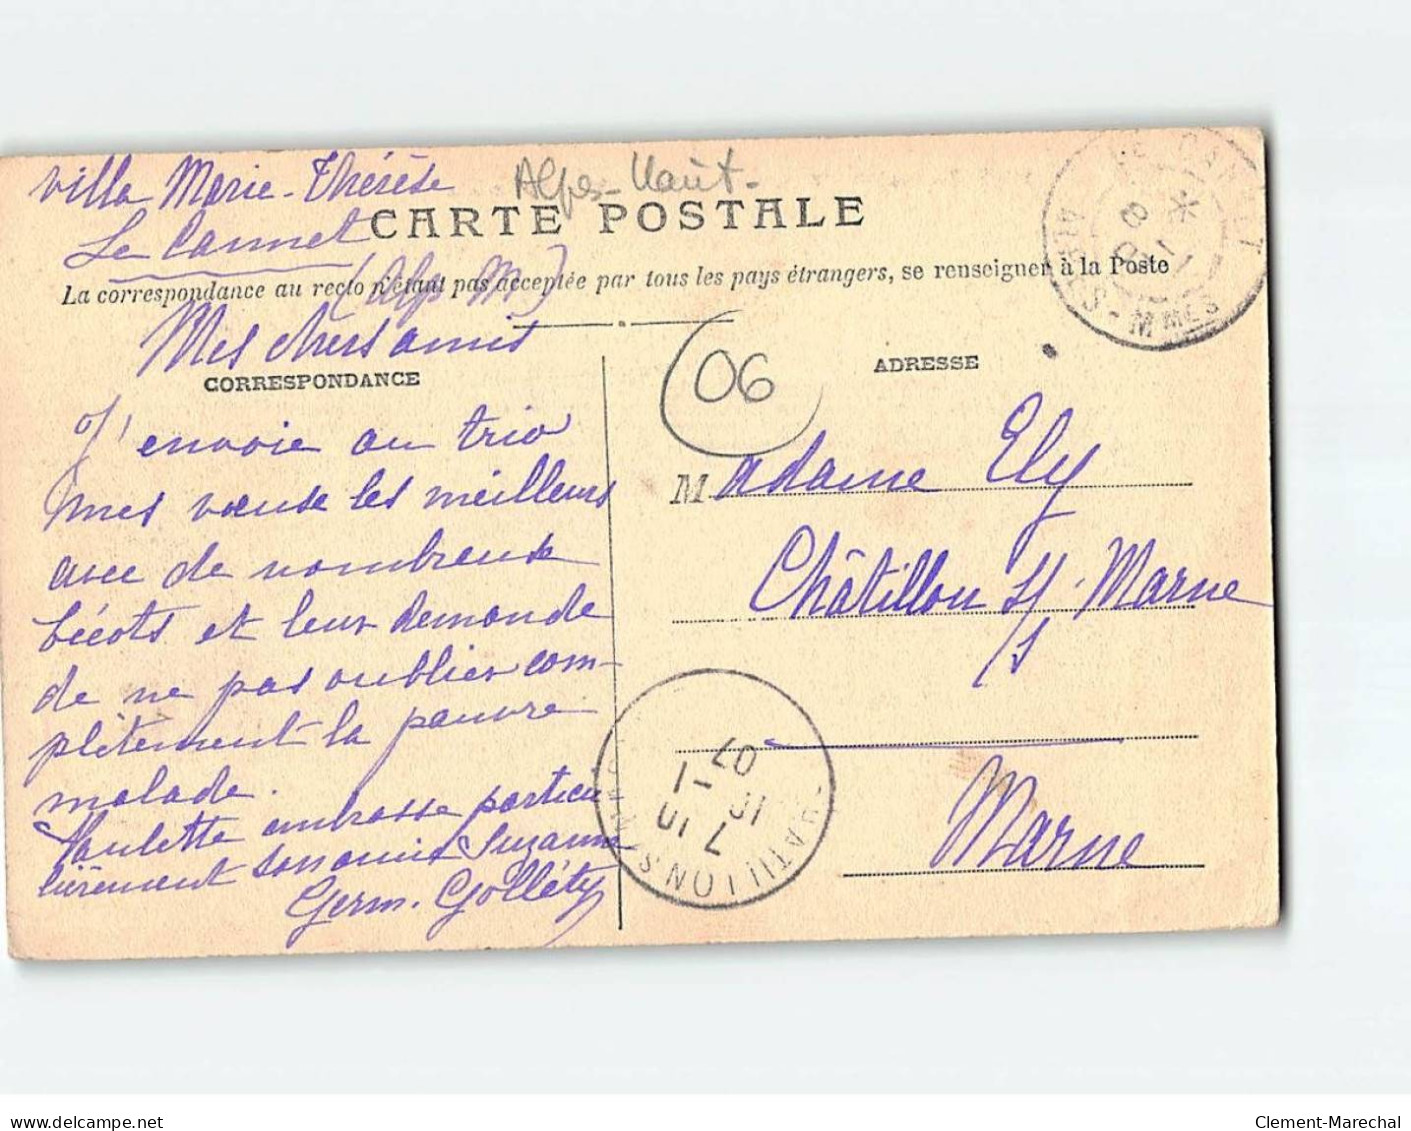 Villa Marie-Thérèse
Le Cannet
(Alp M)
Alpes-Marit-
CARTE POSTALE
La correspondance au recto n'étant pas acceptée par tous les pays étrangers, se renseigner à la Poste
LE CANNET
8
ALPES-MMES
Mes chers amis
CORRESPONDANCE
J'envoie au trio
mes vœux les meilleurs
avec de nombreux
bécots et leur demande
de ne pas oublier com-
plètement la pauvre
malade.
Paulette embrasse particu-
lièrement son amie Suzanne
Germ. Golléty
06
ADRESSE
Madame Ely
Châtillon s/ Marne
Marne
CHATILLON S MARNE
7 10
10 -1
07
www.delcampe.net
Clement-Marechal